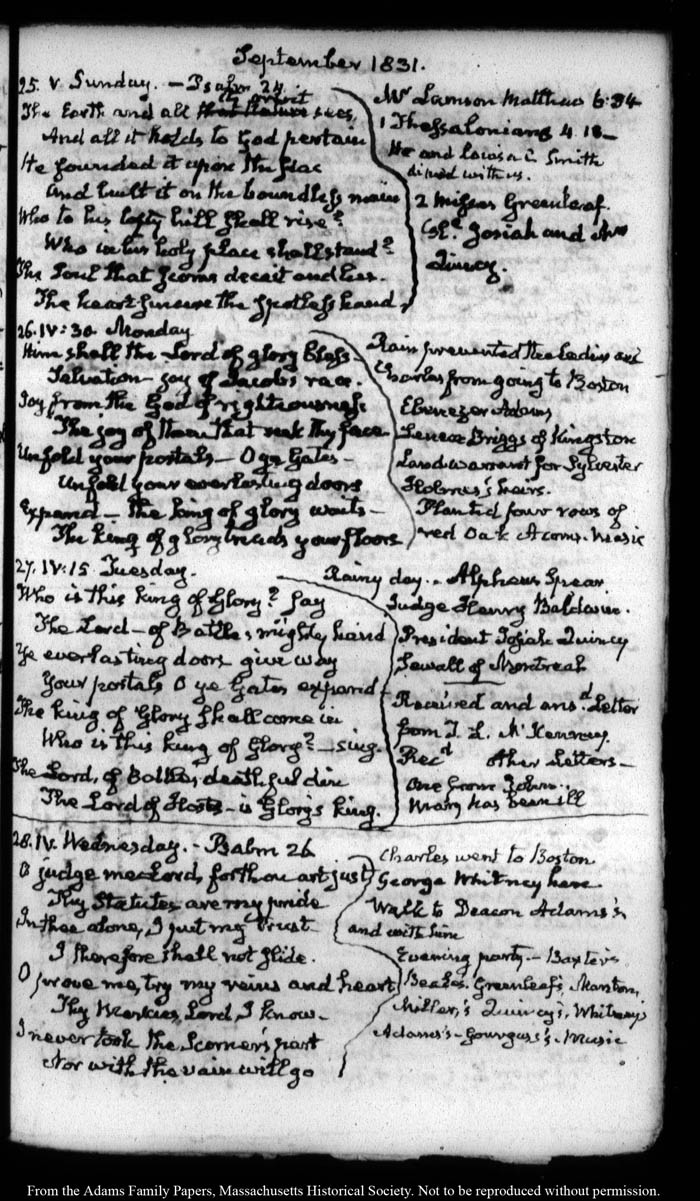 September 1831.
25. V Sunday. — Psalm 24.
The Earth and all that nature sees,
And all it holds to God pertain
He founded it upon the seas
And built it on the boundless main
Who to his lofty hill shall rise?
Who in his holy place shall stand?
The Soul that scorns deceit and lies.
The heart sincere the spotless hand.
Mr Lamson Matthew 6:34
1 Thessalonians 4. 18—
He and Louisa C Smith
dined with us.
2 Misses Greenleaf.
Josiah and Mrs
Quincy.
26. IV:30. Monday
Him shall the Lord of glory bless—
Salvation— joy of Jacob's race.
Joy from the God of righteousness
The joy of them that seek thy face
Unfold your portals— O ye Gates—
Unfold your everlasting doors
Expand— the king of glory waits—
The king of glory treads your floors
Rain prevented the Ladies and
Charles from going to Boston
Ebenezer Adams
Briggs of Kingston
Land-warrant for Sylvester
Holmes's heirs.
Planted four rows of
red Oak Acorns. Music
27. IV:15. Tuesday.
Who is this king of Glory? say
The Lord— of Battles mighty hand
Ye everlasting doors give way
Your portals O ye Gates expand—
The king of Glory shall come in
Who is this king of Glory?— sing.
The Lord, of Battles deathful din
The Lord of Hosts— is Glory's king.
Rainy day.— Alpheus Spear
Judge Henry Baldwin.
President Josiah Quincy
Sewall of Montreal
Received and ansd. Letter
from T. L. McKenney.
Recd other Letters—
one from John.
Mary has been ill
28. IV. Wednesday.— Psalm 26
O judge me Lord, for thou art just
Thy Statutes are my pride
In thee alone, I put my trust
I therefore shall not slide.
O prove me, try my reins and heart
Thy Mercies, Lord, I know—
I never took the Scorner's part
Nor with the vain will go
Charles went to Boston
George Whitney here
Walk to Deacon Adams's
and with him
Evening party.— Baxter's
Beales. Greenleaf's, Marston,
Miller's Quincy's, Whitney's
Adams's— Gourgas's. Music
From the Adams Family Papers, Massachusetts Historical Society. Not to be reproduced without permission.